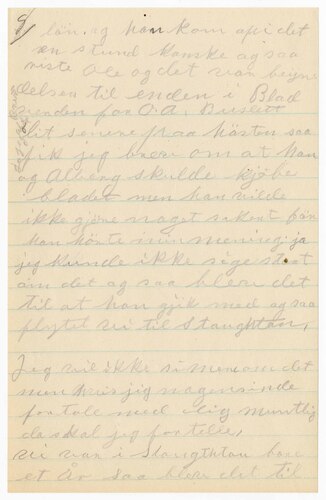 8/ lön. og han kom op i det
en stund kanske og saa
viste Ole og det var begyn
delsen til enden i Blad
venden for O.A. Buslett
lit senere paa hösten saa
fik jeg brev om at han
og Alberg skulde kjöbe
bladet men han vilde
ikke gjöre noget sikert för
han hörte min mening; ja
jeg kunde ikke sige stort
om det og saa blev det
til at han gjik med og saa
flöytet vi til Stoughton,
Jeg vil ikke si mere om det
men hvis jeg nogensinde
for tale med dig muntlig
da skal jeg fortelle,
vi var i Stougthton bare
et År saa blev det til